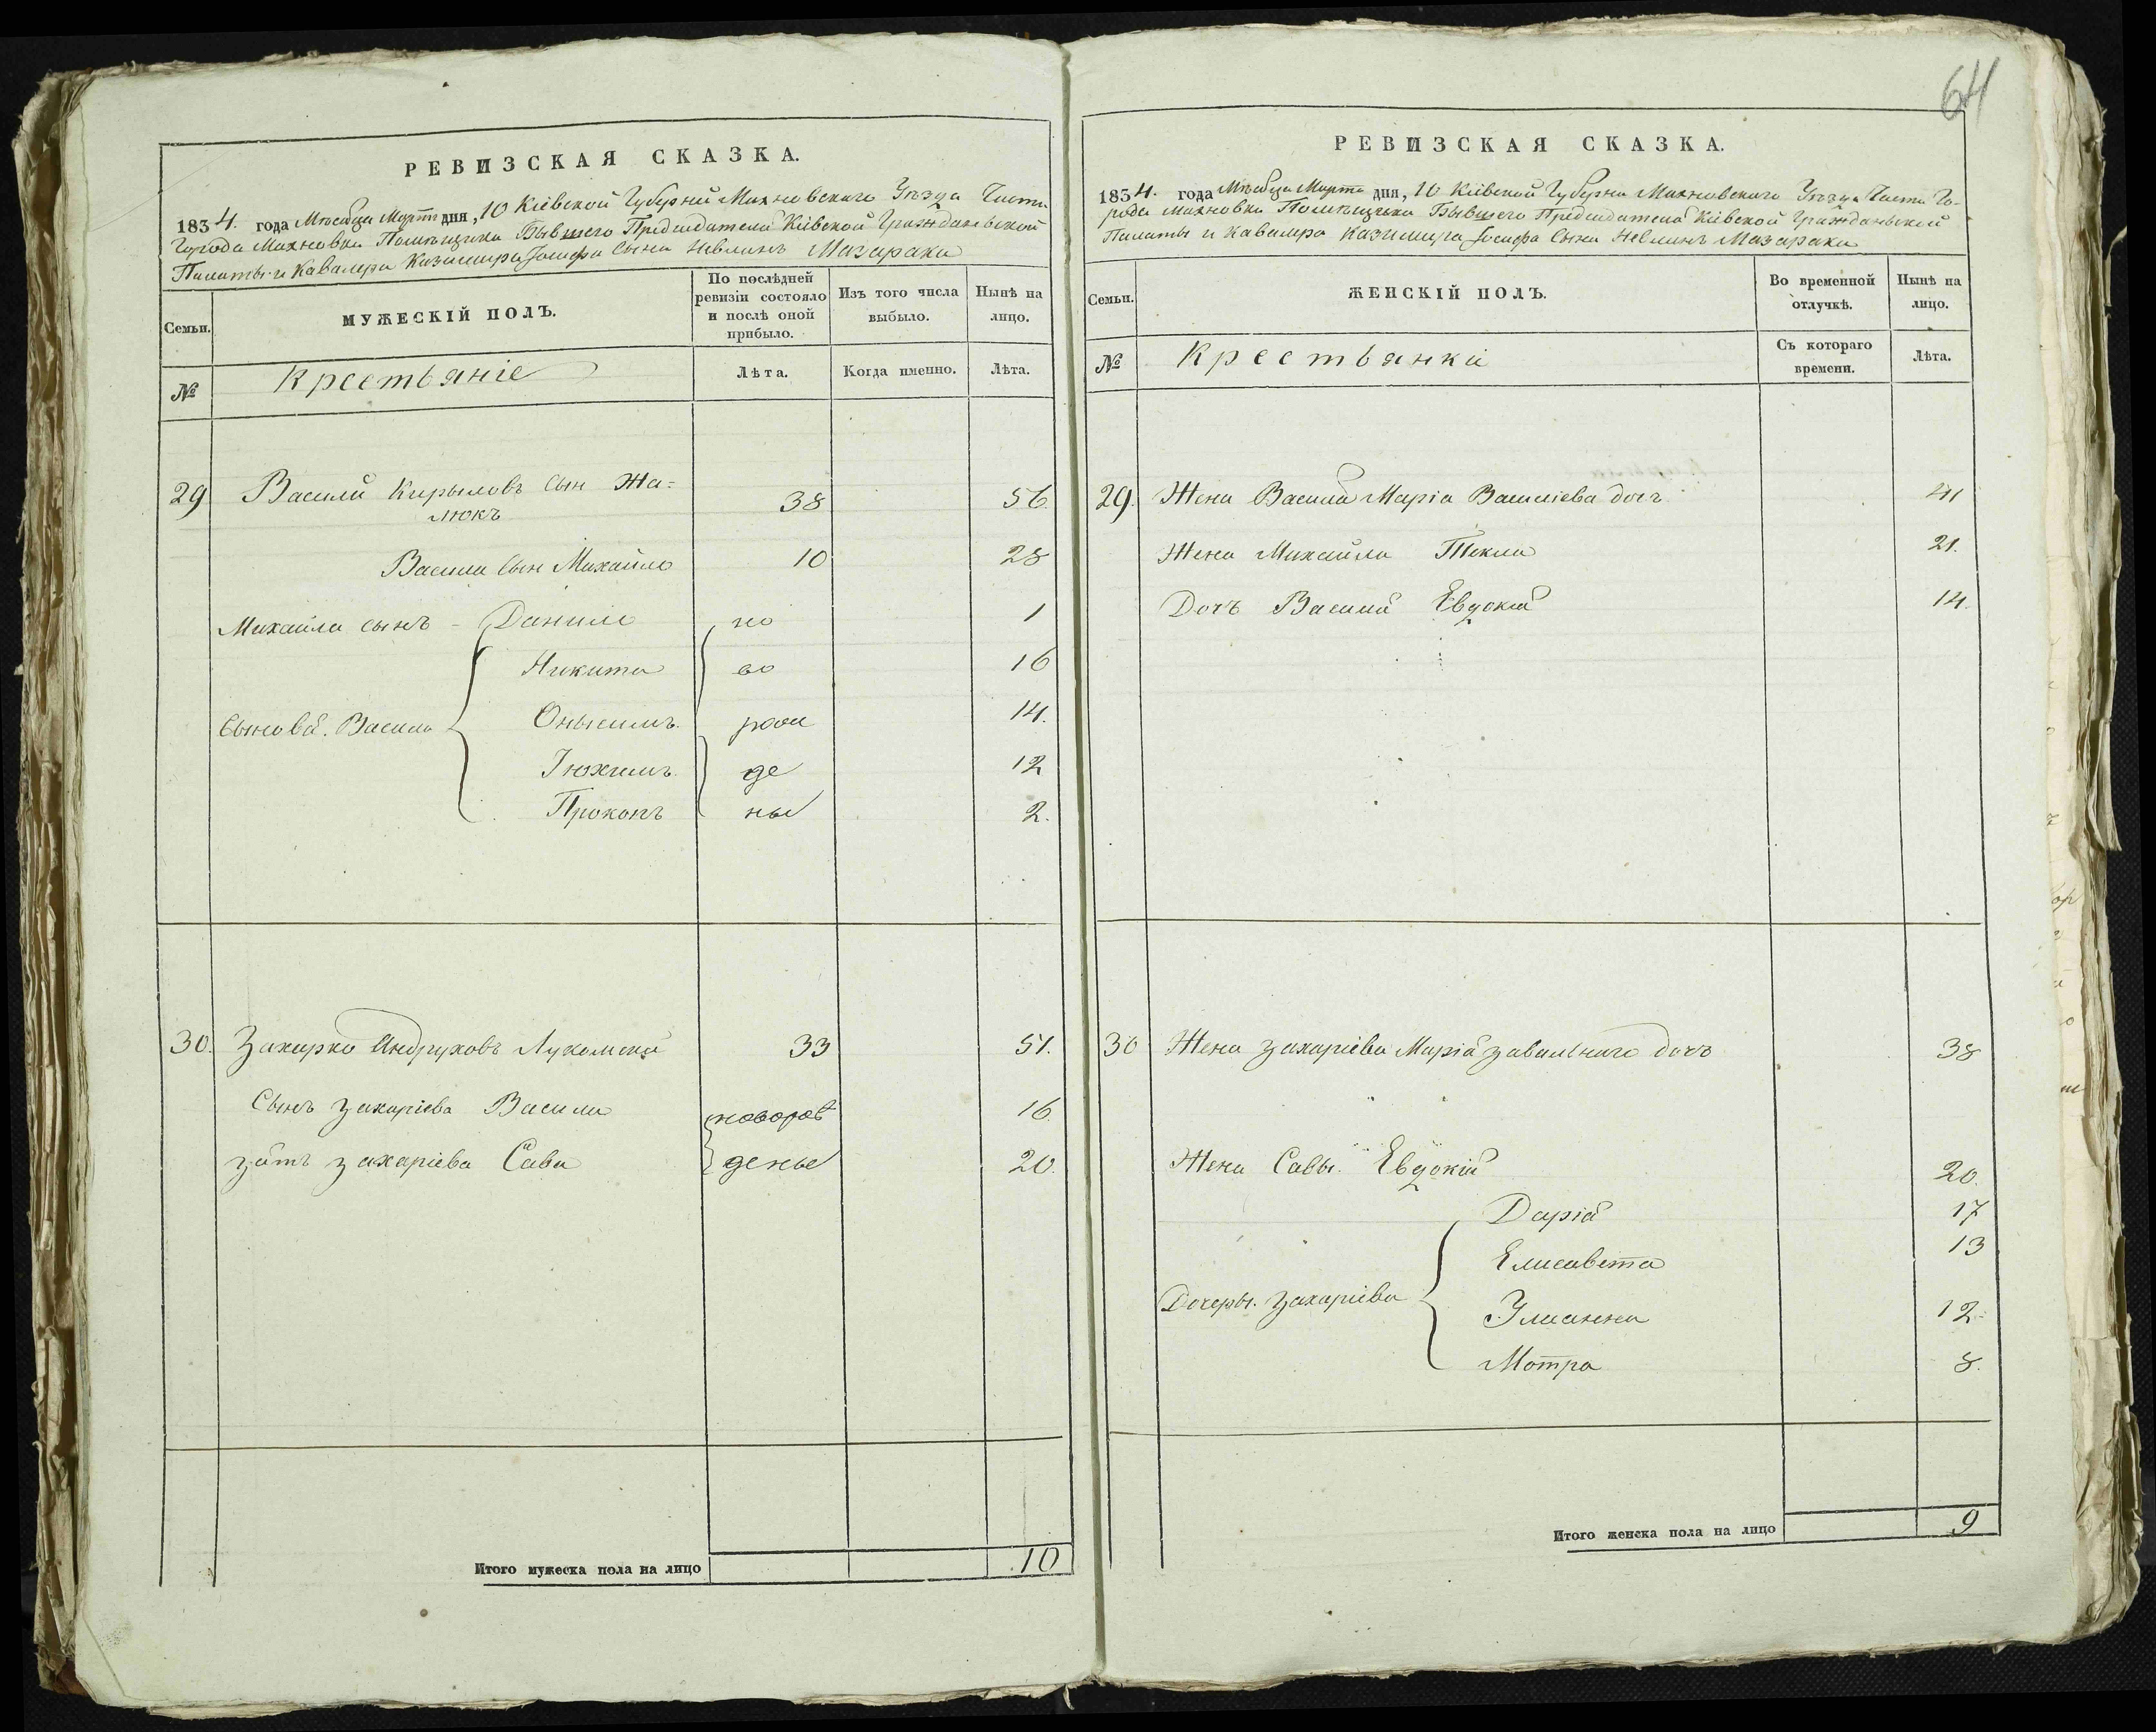 64
РЕВИЗСКАЯ СКАЗКА.
1834. года Мѣсяца Марта дня, 10 Кіевской Губерніи Махновскаго Уѣзда Части
Города Махновки Помѣщика Бывшего Предсидателя Кіевской Гражданьской
Палаты и Кавалера Казимира Іосифа Сына Мазараки
Семьи.
МУЖЕСКІЙ ПОЛЪ.
По послѣдней ревизіи состояло и послѣ оной прибыло.
Изъ того числа выбыло.
Нынѣ на лицо.
№
Крестьяніе
Лѣта.
Когда именно.
Лѣта.
29 Василй Кирыловъ Сын Жа=
люкъ 38 56.
Васили Сын Михайло 10 28
Михайла сынъ - Данило но 1
Никита во 16
Сыновя. Васили Онысимъ рож 14.
Іюхимъ де 12
Прокопъ ные 2.
30. Захарко Андруховъ Лукомски 33 51.
Сынъ Захаріева Васили новорож 16
зять захаріева Сава деные 20.
Итого мужеска пола на лицо 10
РЕВИЗСКАЯ СКАЗКА.
1834. года Мѣсяца Марта дня, 10 Кіевской Губерни Махновскаго Уѣзда Части Го-
рода Махновки Помѣщика Бывшего Предсидателя Кіевской Гражданьской
Палаты и Кавалера Казимира Іосифа Сына Мазараки
Семьи.
ЖЕНСКІЙ ПОЛЪ.
Во временной отлучкѣ.
Нынѣ на лицо.
№
Крестьянки
Съ котораго времени.
Лѣта.
29. Жена Васила Маріа Василіева доч 41
Жена Михайла Текла 21.
Дочъ Васили Евдокія 14.
30 Жена захаріева Марія завального дочъ 38
Жена Савы. Евдокія 20.
Дарія 17
Елисавета 13
Дочеры. захаріева Улианна 12.
Мотра 8.
Итого женска пола на лицо 9